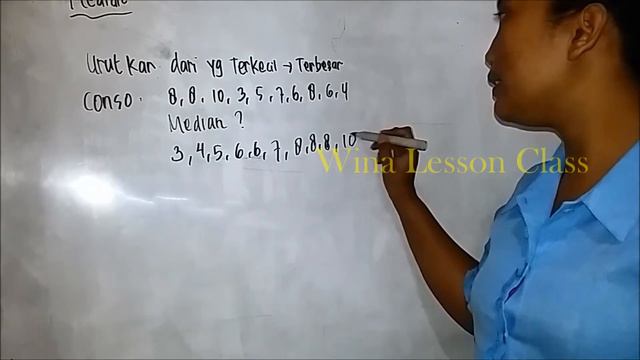 Median
Urutkan dari yg Terkecil → Terbesar
Conso. 8, 8, 10, 3, 5, 7, 6, 8, 6, 4
Median ?
3, 4, 5, 6, 6, 7, 8, 8, 8, 10
Wina Lesson Class